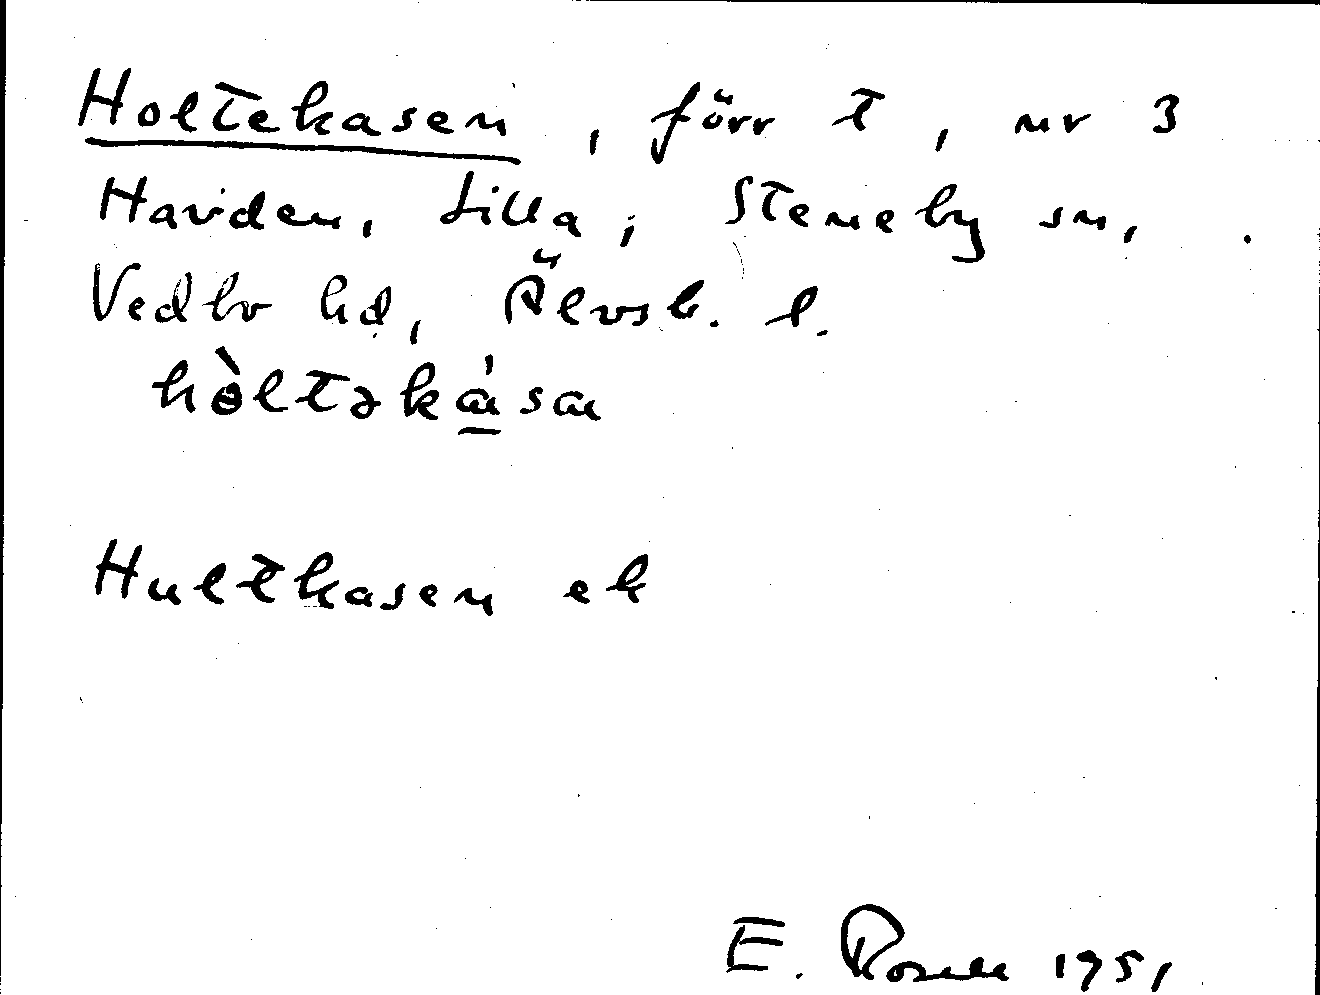 Holtekasen, förr t, nr 3
Haviden, Lilla, Steneby sn,
Vedbo hd, Älvsb. l.
hòltəkása
Hultkasen ek
E. Rosell 1951